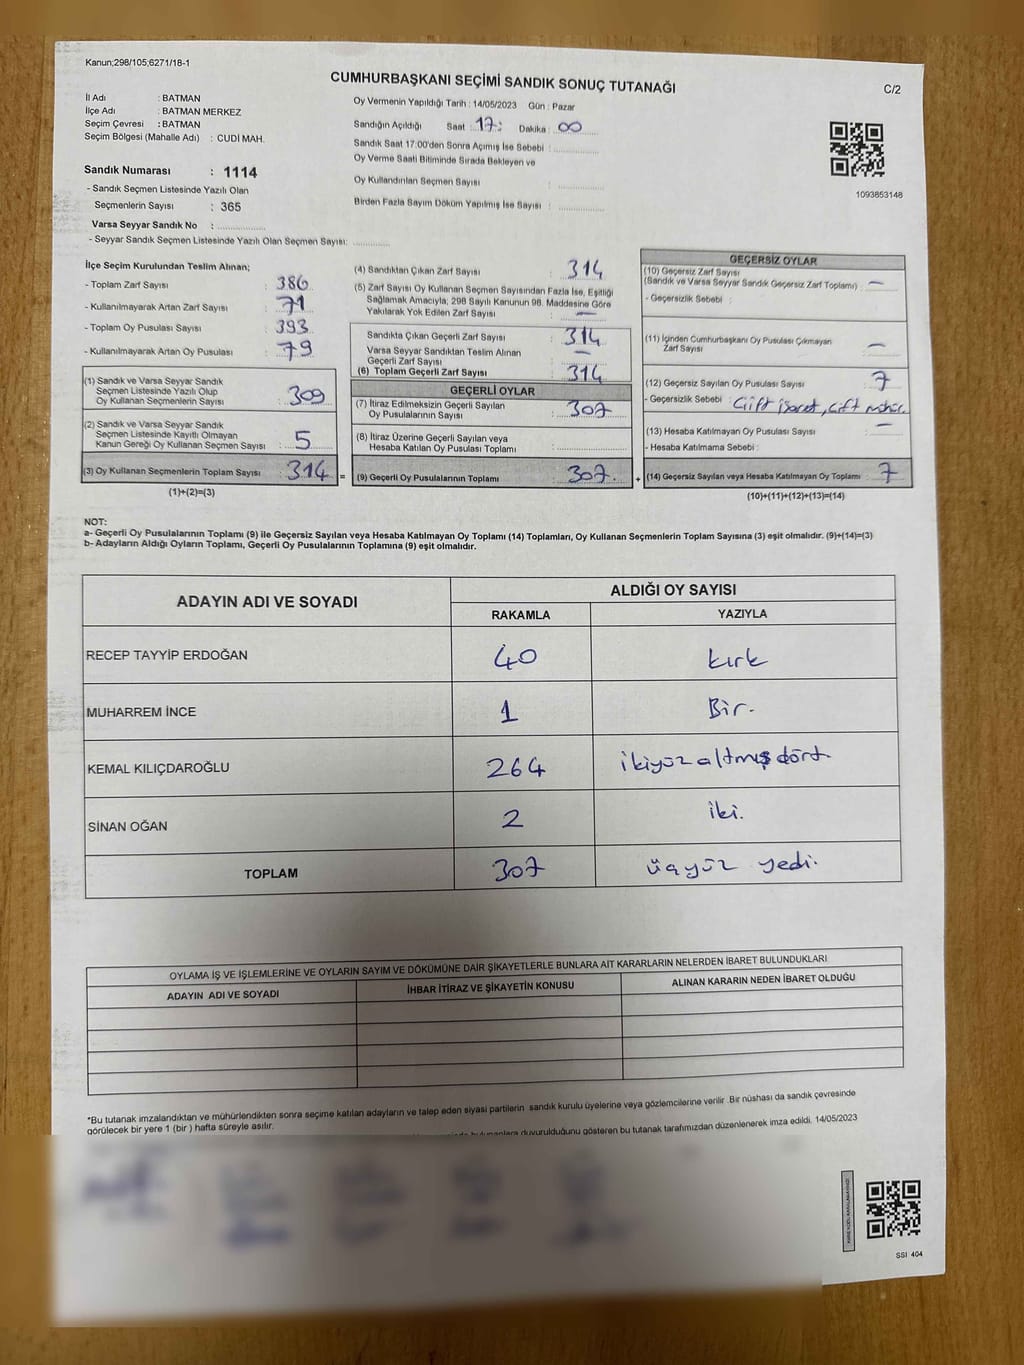 Kanun;298/105;6271/18-1
CUMHURBAŞKANI SEÇİMİ SANDIK SONUÇ TUTANAĞI
C/2
İl Adı : BATMAN
İlçe Adı : BATMAN MERKEZ
Seçim Çevresi : BATMAN
Seçim Bölgesi (Mahalle Adı) : CUDİ MAH.
Oy Vermenin Yapıldığı Tarih : 14/05/2023 Gün : Pazar
Sandığın Açıldığı Saat : 17: Dakika : 00
Sandık Saat 17:00'den Sonra Açımış İse Sebebi :
Oy Verme Saati Bitiminde Sırada Bekleyen ve
Oy Kullandırılan Seçmen Sayısı :
Birden Fazla Sayım Döküm Yapılmış İse Sayısı :
1093853148
Sandık Numarası : 1114
- Sandık Seçmen Listesinde Yazılı Olan
Seçmenlerin Sayısı : 365
Varsa Seyyar Sandık No :
- Seyyar Sandık Seçmen Listesinde Yazılı Olan Seçmen Sayısı:
İlçe Seçim Kurulundan Teslim Alınan;
- Toplam Zarf Sayısı : 386
- Kullanılmayarak Artan Zarf Sayısı : 71
- Toplam Oy Pusulası Sayısı : 393
- Kullanılmayarak Artan Oy Pusulası : 79
(1) Sandık ve Varsa Seyyar Sandık
Seçmen Listesinde Yazılı Olup
Oy Kullanan Seçmenlerin Sayısı : 309
(2) Sandık ve Varsa Seyyar Sandık
Seçmen Listesinde Kayıtlı Olmayan
Kanun Gereği Oy Kullanan Seçmen Sayısı : 5
(3) Oy Kullanan Seçmenlerin Toplam Sayısı : 314 =
(1)+(2)=(3)
(4) Sandıktan Çıkan Zarf Sayısı : 314
(5) Zarf Sayısı Oy Kullanan Seçmen Sayısından Fazla İse, Eşitliği
Sağlamak Amacıyla, 298 Sayılı Kanunun 98. Maddesine Göre
Yakılarak Yok Edilen Zarf Sayısı : —
Sandıkta Çıkan Geçerli Zarf Sayısı : 314
Varsa Seyyar Sandıktan Teslim Alınan
Geçerli Zarf Sayısı : —
(6) Toplam Geçerli Zarf Sayısı : 314
GEÇERLİ OYLAR
(7) İtiraz Edilmeksizin Geçerli Sayılan
Oy Pusulalarının Sayısı : 307
(8) İtiraz Üzerine Geçerli Sayılan veya
Hesaba Katılan Oy Pusulası Toplamı :
(9) Geçerli Oy Pusulalarının Toplamı : 307. +
GEÇERSİZ OYLAR
(10) Geçersiz Zarf Sayısı
(Sandık ve Varsa Seyyar Sandık Geçersiz Zarf Toplamı) : —
- Geçersizlik Sebebi :
(11) İçinden Cumhurbaşkanı Oy Pusulası Çıkmayan
Zarf Sayısı : —
(12) Geçersiz Sayılan Oy Pusulası Sayısı : 7
- Geçersizlik Sebebi : Çift işaret, çift mühür.
(13) Hesaba Katılmayan Oy Pusulası Sayısı : —
- Hesaba Katılmama Sebebi :
(14) Geçersiz Sayılan veya Hesaba Katılmayan Oy Toplamı : 7
(10)+(11)+(12)+(13)=(14)
NOT:
a- Geçerli Oy Pusulalarının Toplamı (9) ile Geçersiz Sayılan veya Hesaba Katılmayan Oy Toplamı (14) Toplamları, Oy Kullanan Seçmenlerin Toplam Sayısına (3) eşit olmalıdır. (9)+(14)=(3)
b- Adayların Aldığı Oyların Toplamı, Geçerli Oy Pusulalarının Toplamına (9) eşit olmalıdır.
ADAYIN ADI VE SOYADI
ALDIĞI OY SAYISI
RAKAMLA YAZIYLA
RECEP TAYYİP ERDOĞAN 40 kırk
MUHARREM İNCE 1 Bir.
KEMAL KILIÇDAROĞLU 264 ikiyüz altmış dört.
SİNAN OĞAN 2 iki.
TOPLAM 307 üçyüz yedi.
OYLAMA İŞ VE İŞLEMLERİNE VE OYLARIN SAYIM VE DÖKÜMÜNE DAİR ŞİKAYETLERLE BUNLARA AİT KARARLARIN NELERDEN İBARET BULUNDUKLARI
ADAYIN ADI VE SOYADI İHBAR İTİRAZ VE ŞİKAYETİN KONUSU ALINAN KARARIN NEDEN İBARET OLDUĞU
*Bu tutanak imzalandıktan ve mühürlendikten sonra seçime katılan adayların ve talep eden siyasi partilerin sandık kurulu üyelerine veya gözlemcilerine verilir. Bir nüshası da sandık çevresinde
görülecek bir yere 1 (bir ) hafta süreyle asılır.
duyurulduğunu gösteren bu tutanak tarafımızdan düzenlenerek imza edildi. 14/05/2023
SSI 404